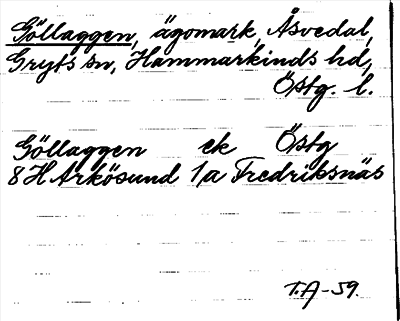 Göllaggen, ägomark, Åsvedal,
Gryts sn, Hammarkinds hd,
Östg. l.
Göllaggen ek Östg
8H Arkösund 1a Fredriksnäs
T.A-59.